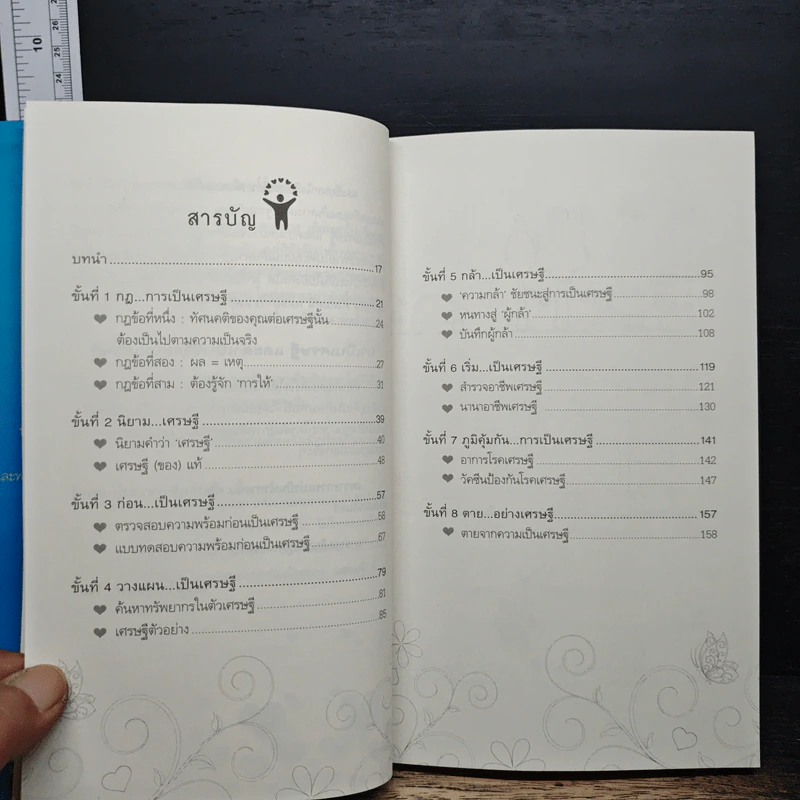 สารบัญ
บทนำ 17
ขั้นที่ 1 กฎ...การเป็นเศรษฐี 21
กฎข้อที่หนึ่ง : ทัศนคติของคุณต่อเศรษฐีนั้น 24
ต้องเป็นไปตามความเป็นจริง
กฎข้อที่สอง : ผล = เหตุ 27
กฎข้อที่สาม : ต้องรู้จัก 'การให้' 31
ขั้นที่ 2 นิยาม...เศรษฐี 39
นิยามคำว่า 'เศรษฐี' 40
เศรษฐี (ของ) แท้ 48
ขั้นที่ 3 ก่อน...เป็นเศรษฐี 57
ตรวจสอบความพร้อมก่อนเป็นเศรษฐี 58
แบบทดสอบความพร้อมก่อนเป็นเศรษฐี 67
ขั้นที่ 4 วางแผน...เป็นเศรษฐี 79
ค้นหาทรัพยากรในตัวเศรษฐี 81
เศรษฐีตัวอย่าง 85
ขั้นที่ 5 กล้า...เป็นเศรษฐี 95
'ความกล้า' ชัยชนะสู่การเป็นเศรษฐี 98
หนทางสู่ 'ผู้กล้า' 102
บันทึกผู้กล้า 108
ขั้นที่ 6 เริ่ม...เป็นเศรษฐี 119
สำรวจอาชีพเศรษฐี 121
นานาอาชีพเศรษฐี 130
ขั้นที่ 7 ภูมิคุ้มกัน...การเป็นเศรษฐี 141
อาการโรคเศรษฐี 142
วัคซีนป้องกันโรคเศรษฐี 147
ขั้นที่ 8 ตาย...อย่างเศรษฐี 157
ตายจากความเป็นเศรษฐี 158
10
26
25
24